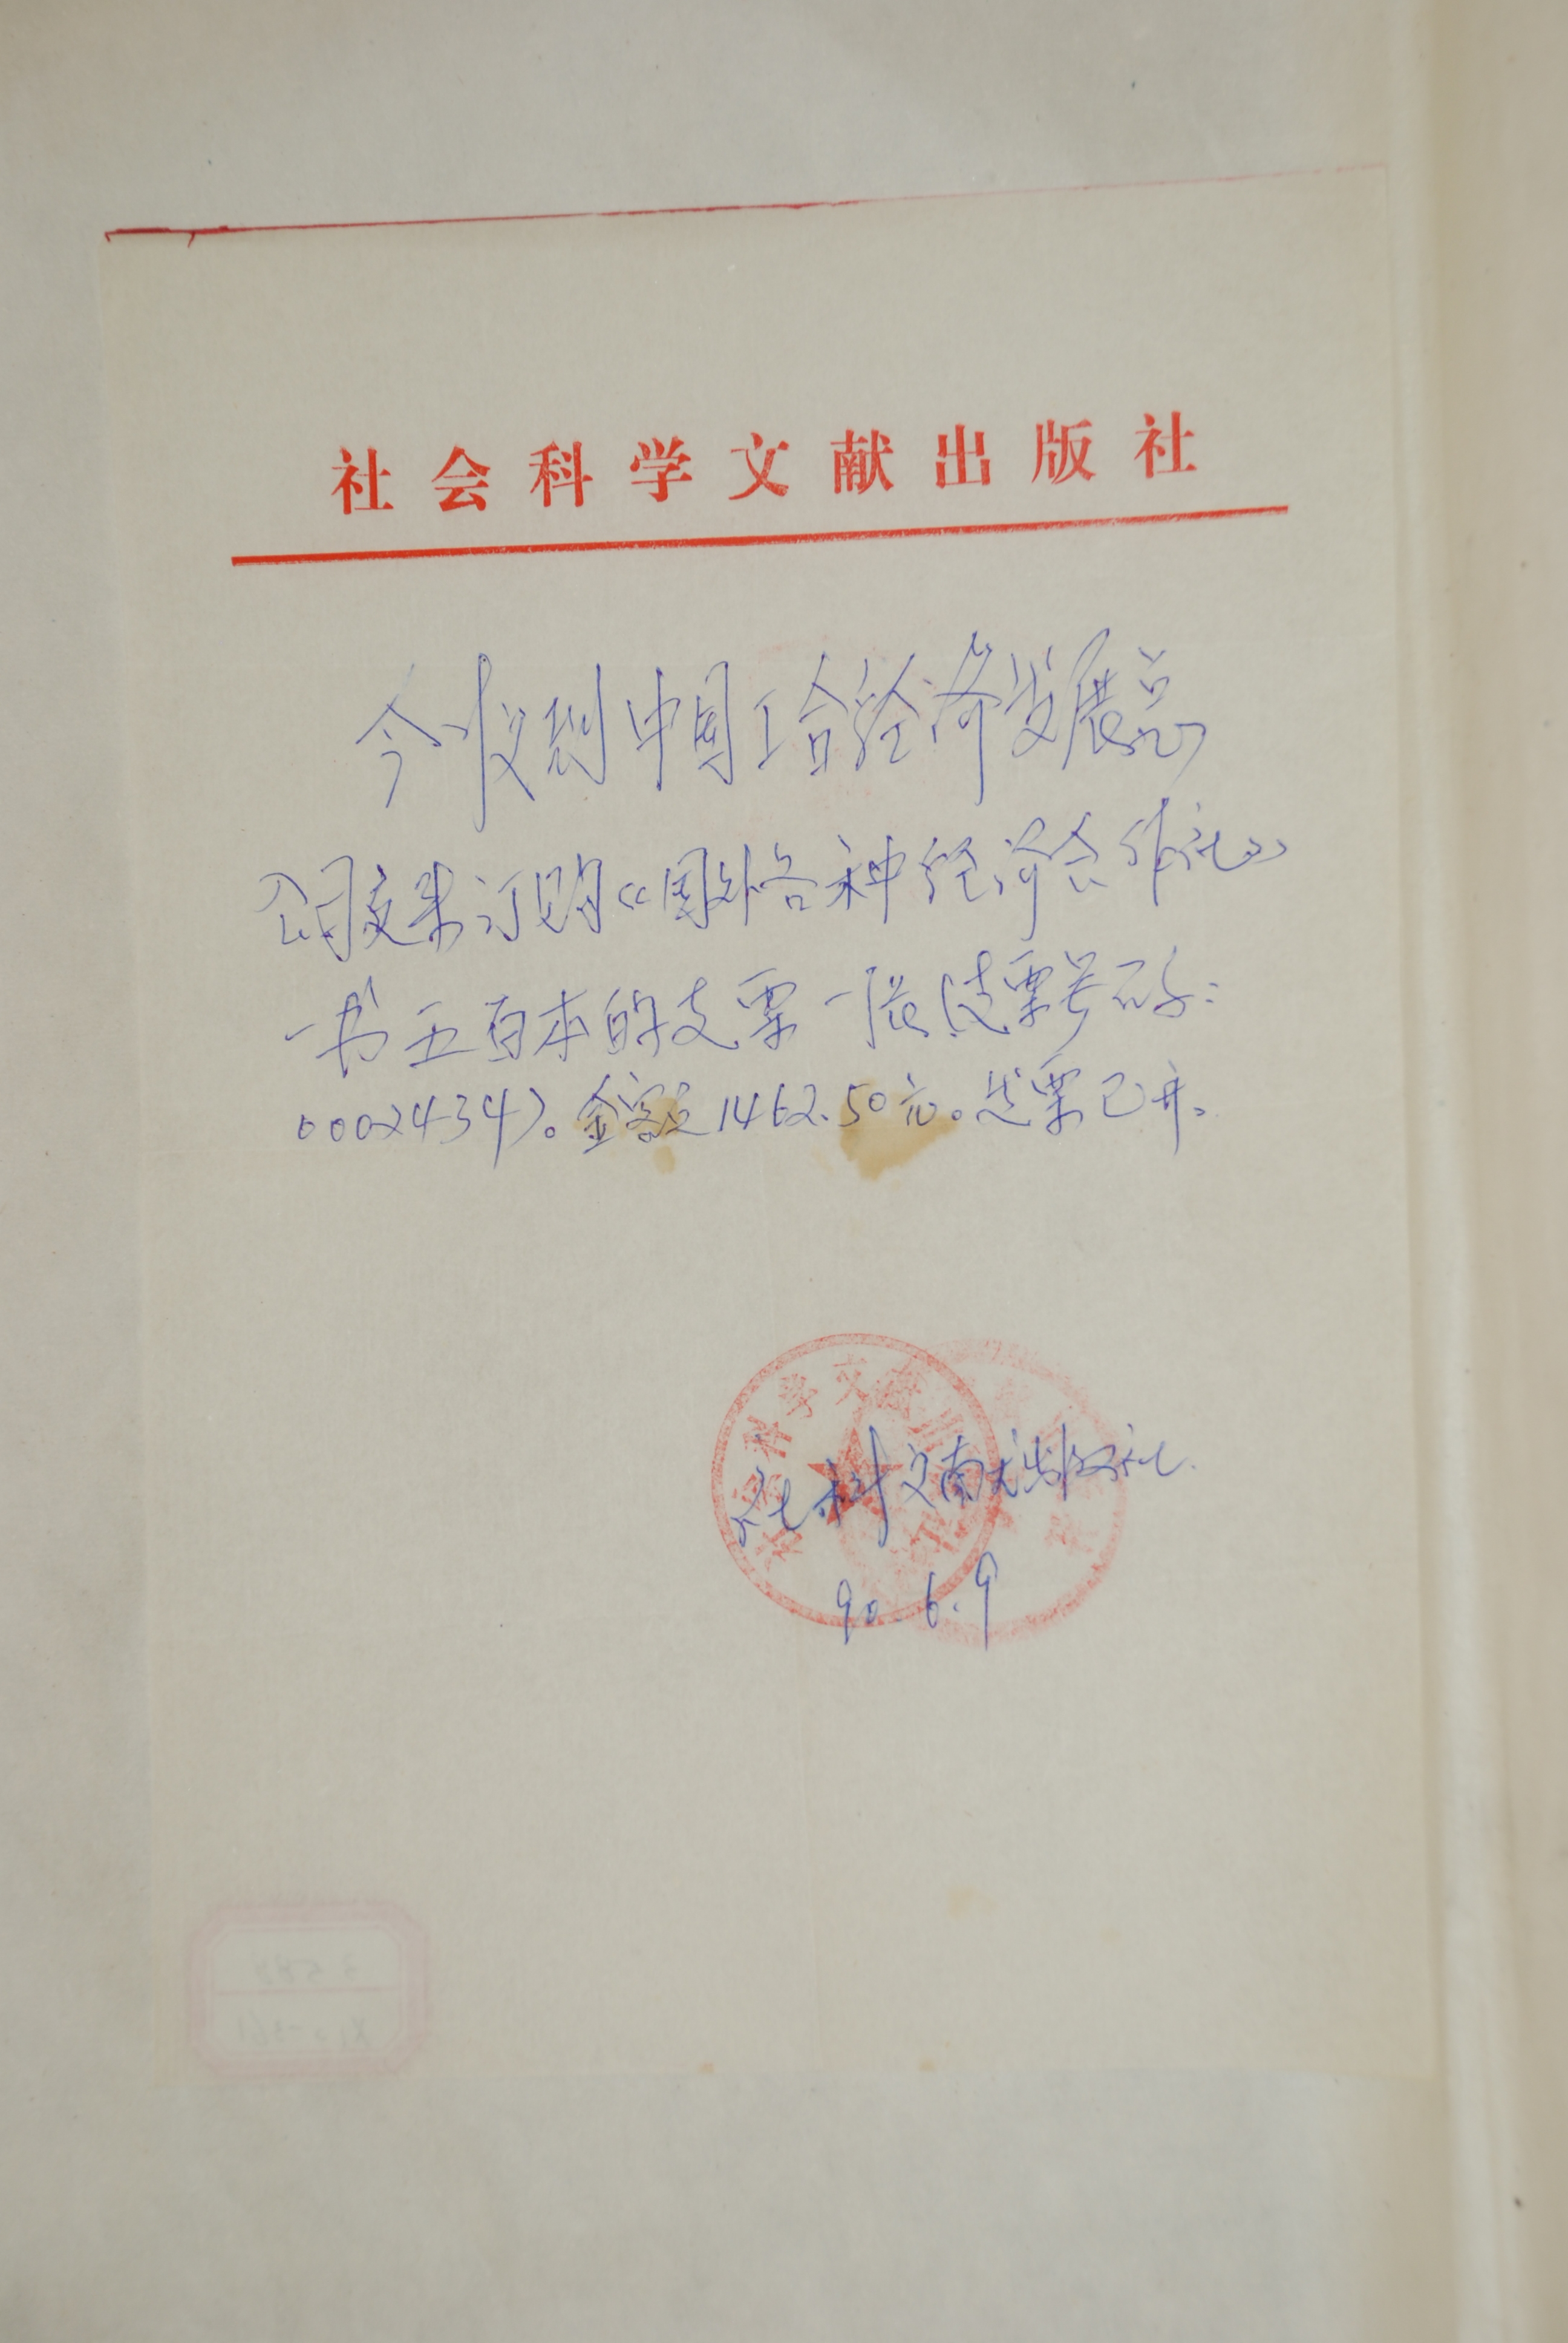 社会科学文献出版社
今收到中国工合经济发展总
公司交来订购《国外各种经济合作社》
一书五百本的支票一张(支票号码:
0002434)。金额1462.50元。发票已开。
社科文献出版社
90.6.9